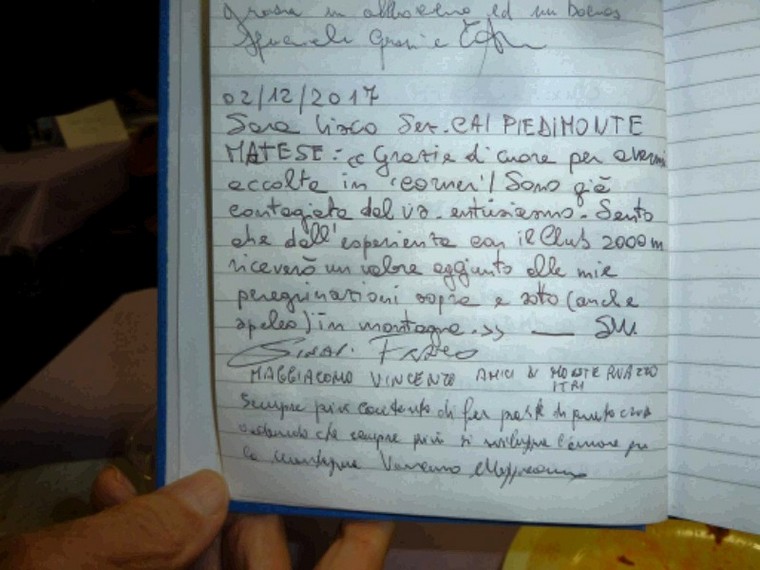 grazie in
grazie
02/12/2017
Sara Lisco Sez. CAI PIEDIMONTE
MATESE: << Grazie di cuore per avermi
accolta in 'corner'! Sono già
contagiata dal vs. entusiasmo. Sento
che dall'esperienza con il Club 2000 m
riceverò un valore aggiunto alle mie
peregrinazioni sopra e sotto (anche
speleo) in montagna. >> — SW.
MAGGIACOMO VINCENZO AMICI DI MONTE RUAZZO
ITRI
Sempre più contento di far parte di questo club
che sempre più si sviluppa l'amore per
la montagna Vincenzo Maggiacomo